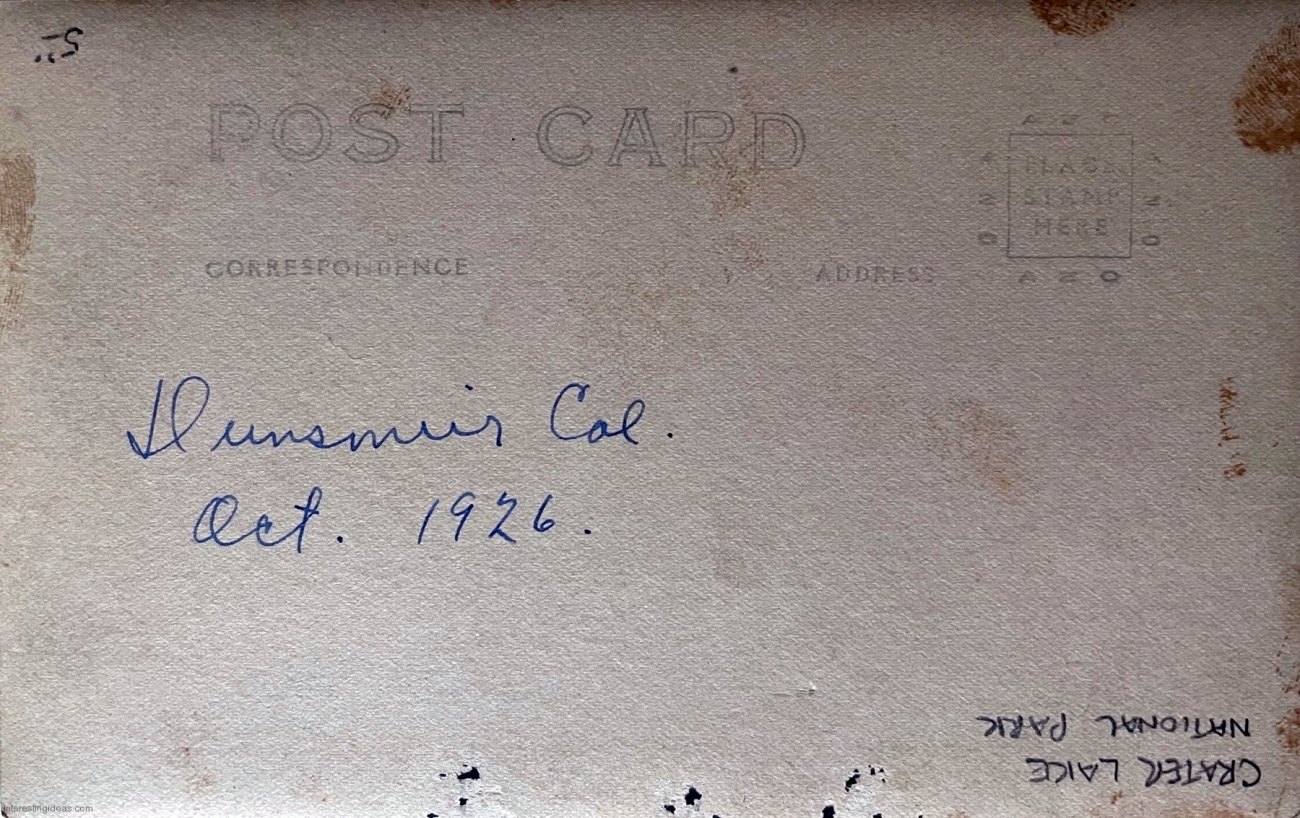 5⁰⁰
POST CARD
CORRESPONDENCE
ADDRESS
PLACE
STAMP
HERE
AZO
AZO
Dunsmuir Cal.
Oct. 1926.
CRATER LAKE
NATIONAL PARK
interestingideas.com